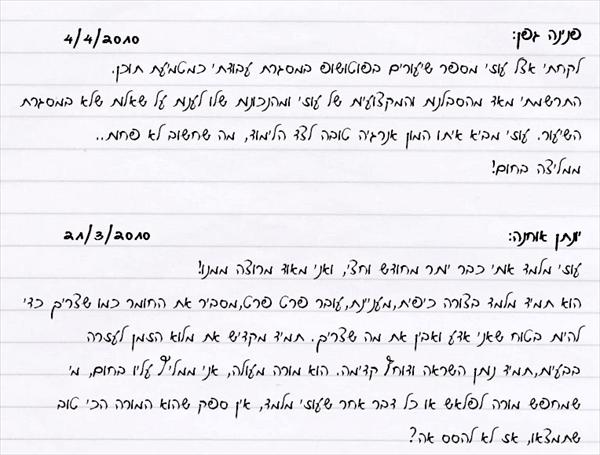 פנינה גפן: 4/4/2010
לקחתי אצל עוזי מספר שיעורים בפוטושופ במסגרת עבודתי כמטמיעת תוכן.
התרשמתי מאד מהסבלנות והמקצועיות של עוזי ומהנכונות שלו לענות על שאלות שלא במסגרת
השיעור. עוזי מביא איתו המון אנרגיה טובה לצד הלימוד, מה שחשוב לא פחות..
ממליצה בחום!
יונתן אוחנה: 21/3/2010
עוזי מלמד אותי כבר יותר מחודש וחצי, ואני מאוד מרוצה ממנו!
הוא תמיד מלמד בצורה כיפית,מעניינת,עובר פרט פרט,מסביר את החומר כמו שצריך כדי
להיות בטוח שאני אדע ואבין את מה שצריך. תמיד מקדיש את מלוא הזמן לעזרה
בבעיות,תמיד נותן השראה ודוחף קדימה. הוא מורה מעולה, אני ממליץ עליו בחום, מי
שמחפש מורה לפלאש או כל דבר אחר שעוזי מלמד, אין ספק שהוא המורה הכי טוב
שתמצאו, אז לא להסס אה?